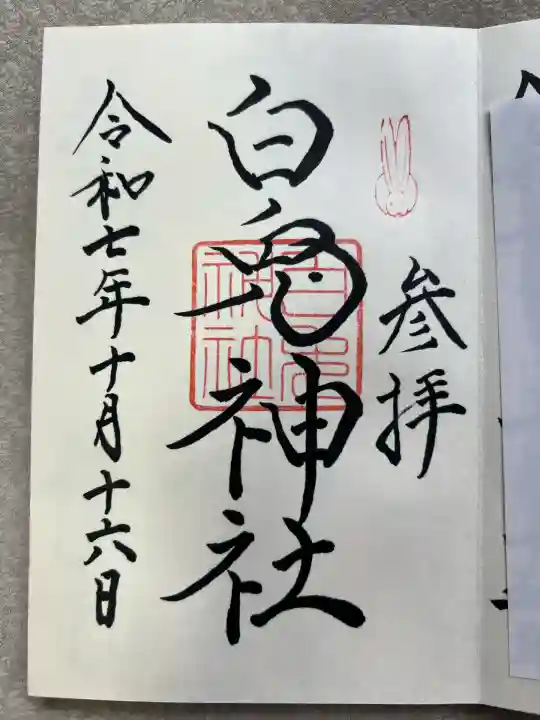 参拝
白兎神社
白兎神社
令和七年十月十六日